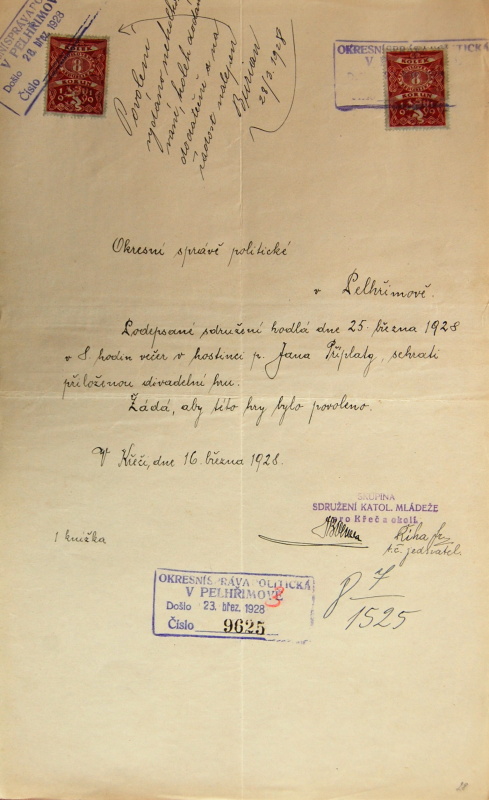 OKRESNÍ SPRÁVA POLITICKÁ
V PELHŘIMOVĚ
Došlo 28 břez. 1928
Číslo
KOLEK
8
KORUN
Povolení
vydáno
kolek
dodatečně a na
žádost nalepen
Burian
28/3 1928
OKRESNÍ SPRÁVA POLITICKÁ
V
KOLEK
8
KORUN
Okresní správě politické
v Pelhřimově.
Podepsané sdružení hodlá dne 25. března 1928
v 8 hodin večer v hostinci p. Jana Příplaty, sehrati
přiloženou divadelní hru.
Žádá, aby této hry bylo povoleno.
V Křeči, dne 16. března 1928.
SKUPINA
SDRUŽENÍ KATOL. MLÁDEŽE
pro Křeč a okolí.
Říha
t.č. jednatel
1 knížka
OKRESNÍ SPRÁVA POLITICKÁ
V PELHŘIMOVĚ
Došlo 23. břez. 1928 3
Číslo 9625
7
1525